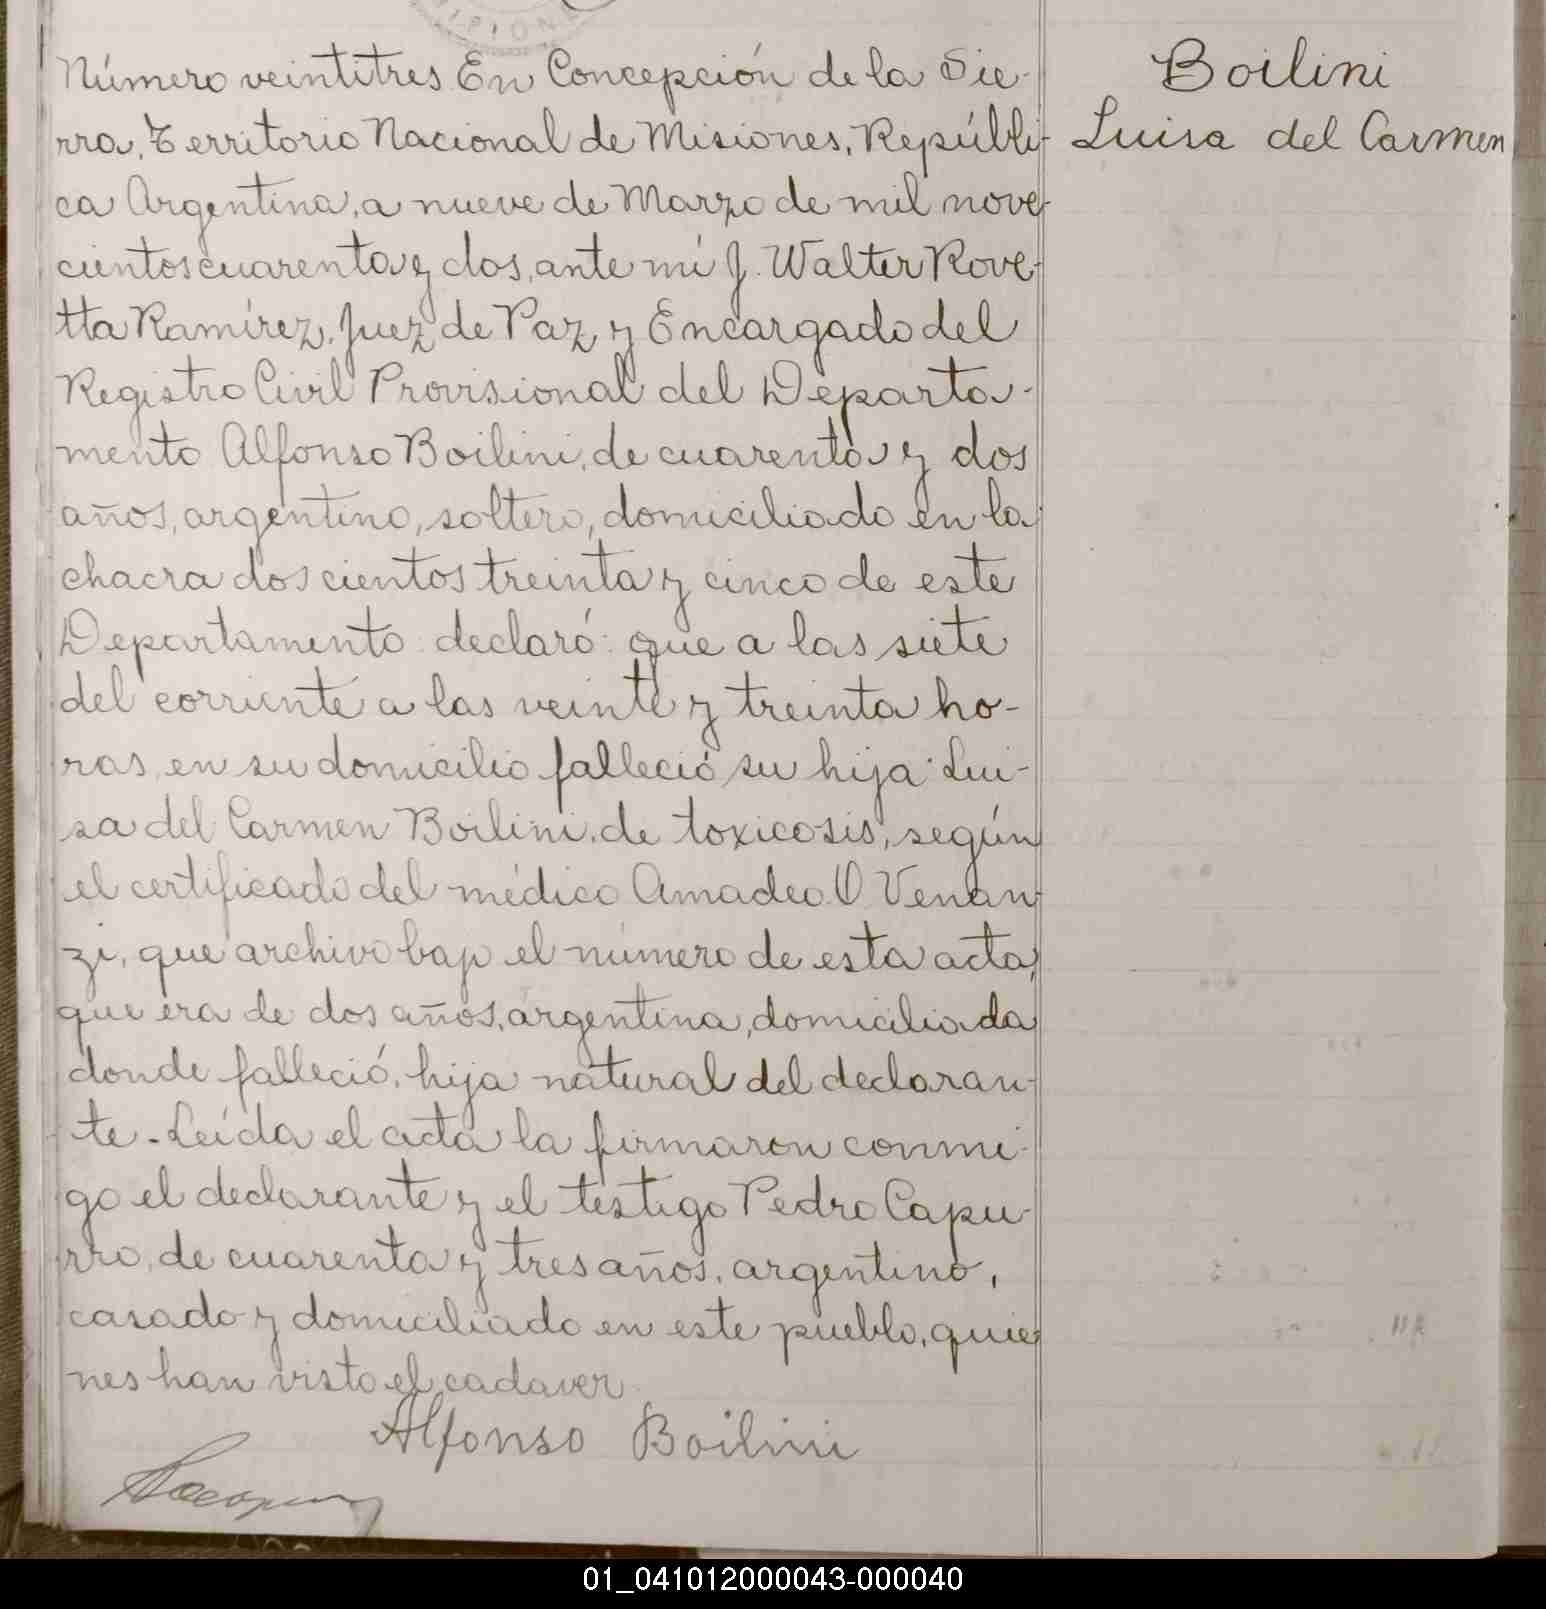 Número veintitres En Concepción de la Sie-
rra, Territorio Nacional de Misiones, Repúbli-
ca Argentina, a nueve de Marzo de mil nove-
cientos cuarenta y dos, ante mí J. Walter Rove-
tta Ramírez, Juez de Paz y Encargado del
Registro Civil Provisional del Departa-
mento Alfonso Boilini, de cuarenta y dos
años, argentino, soltero, domiciliado en la
chacra doscientos treinta y cinco de este
Departamento declaró: que a las siete
del corriente a las veinte y treinta ho-
ras, en su domicilio falleció su hija Lui-
sa del Carmen Boilini, de toxicosis, según
el certificado del médico Amadeo O. Venan-
zi, que archivo bajo el número de esta acta,
que era de dos años, argentina, domiciliada
donde falleció, hija natural del declaran-
te. Leída el acta la firmaron conmi-
go el declarante y el testigo Pedro Capu-
rro, de cuarenta y tres años, argentino,
casado y domiciliado en este pueblo, quie-
nes han visto el cadaver.
Alfonso Boilini
Boilini
Luisa del Carmen
01_041012000043-000040